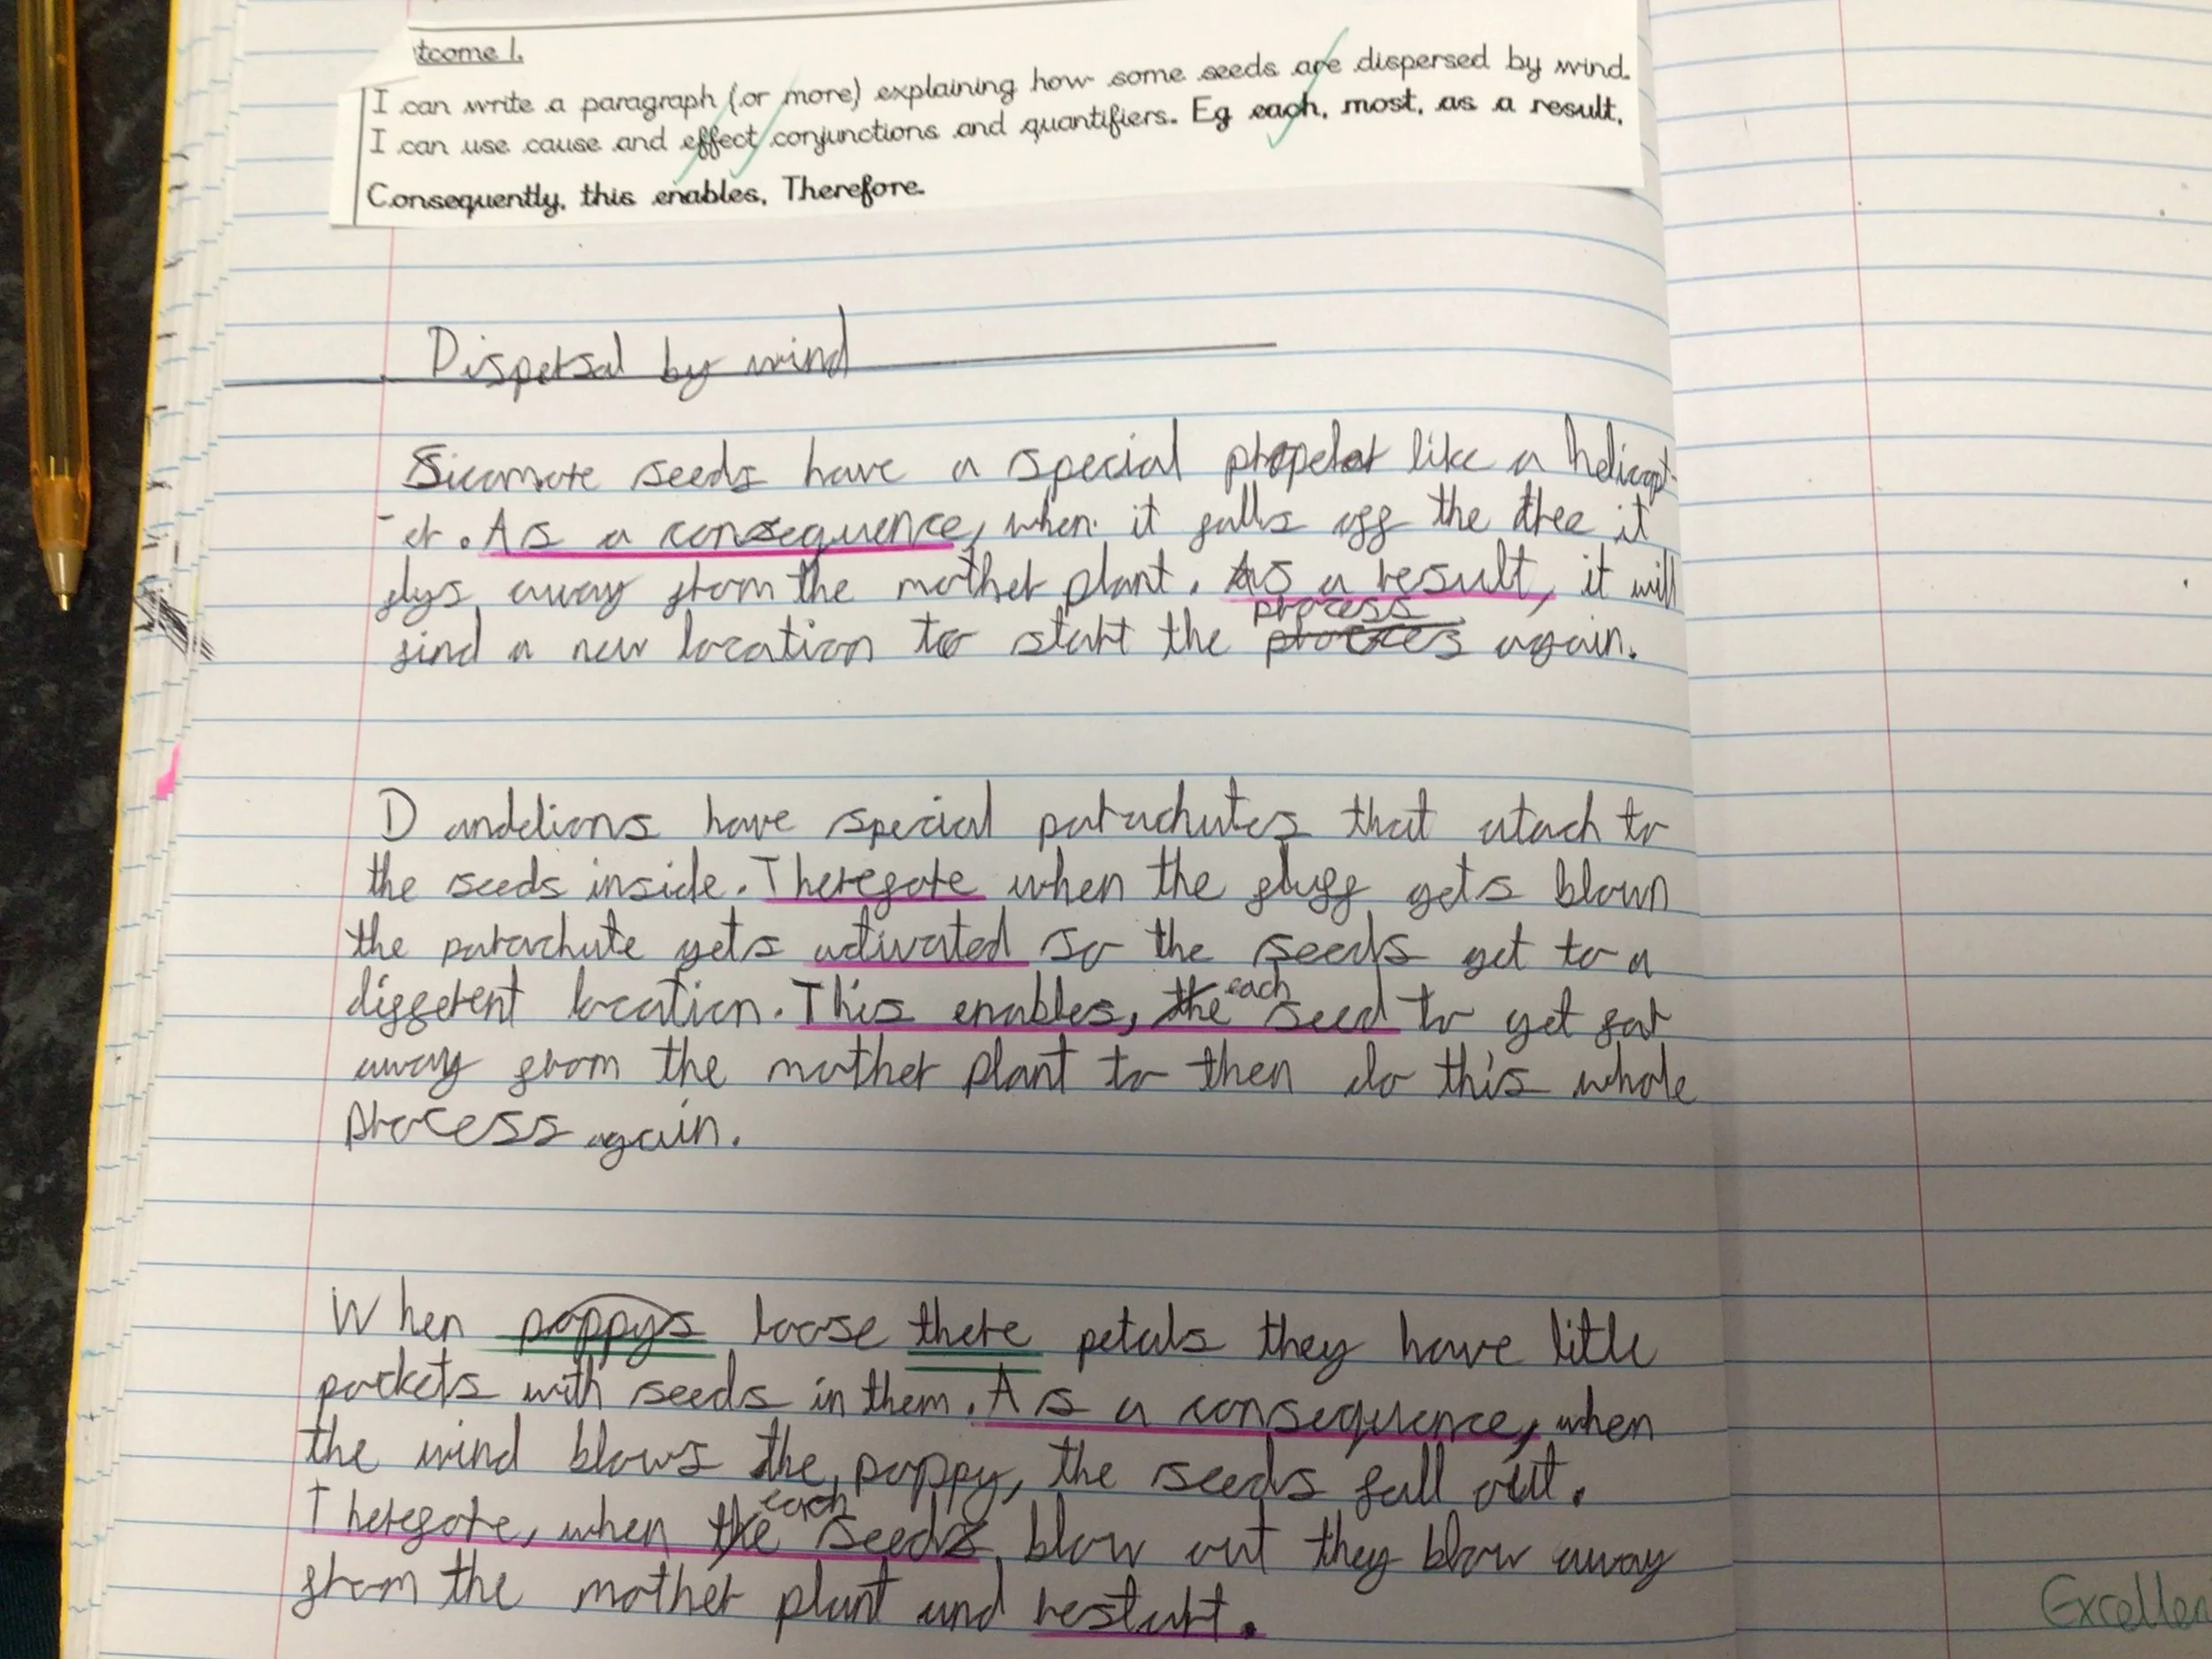 tcome 1.
I can write a paragraph (or more) explaining how some seeds are dispersed by wind.
I can use cause and effect conjunctions and quantifiers. Eg each, most, as a result,
Consequently, this enables, Therefore.
Dispersal by wind
Sicamore seeds have a special propelor like a helicopt-
-er. As a consequence, when it falls off the tree it
flys away from the mother plant. As a result, it will
process
find a new location to start the proces again.
Dandelions have special parachutes that atach to
the seeds inside. Therefore when the fluff gets blown
the parachute gets activated so the seeds get to a
each
different location. This enables, the seed to get far
away from the mother plant to then do this whole
process again.
When poppys loose there petals they have little
pockets with seeds in them. As a consequence, when
the wind blows the poppy, the seeds fall out.
each
Therefore, when the seeds blow out they blow away
from the mother plant and restart.
Excellen